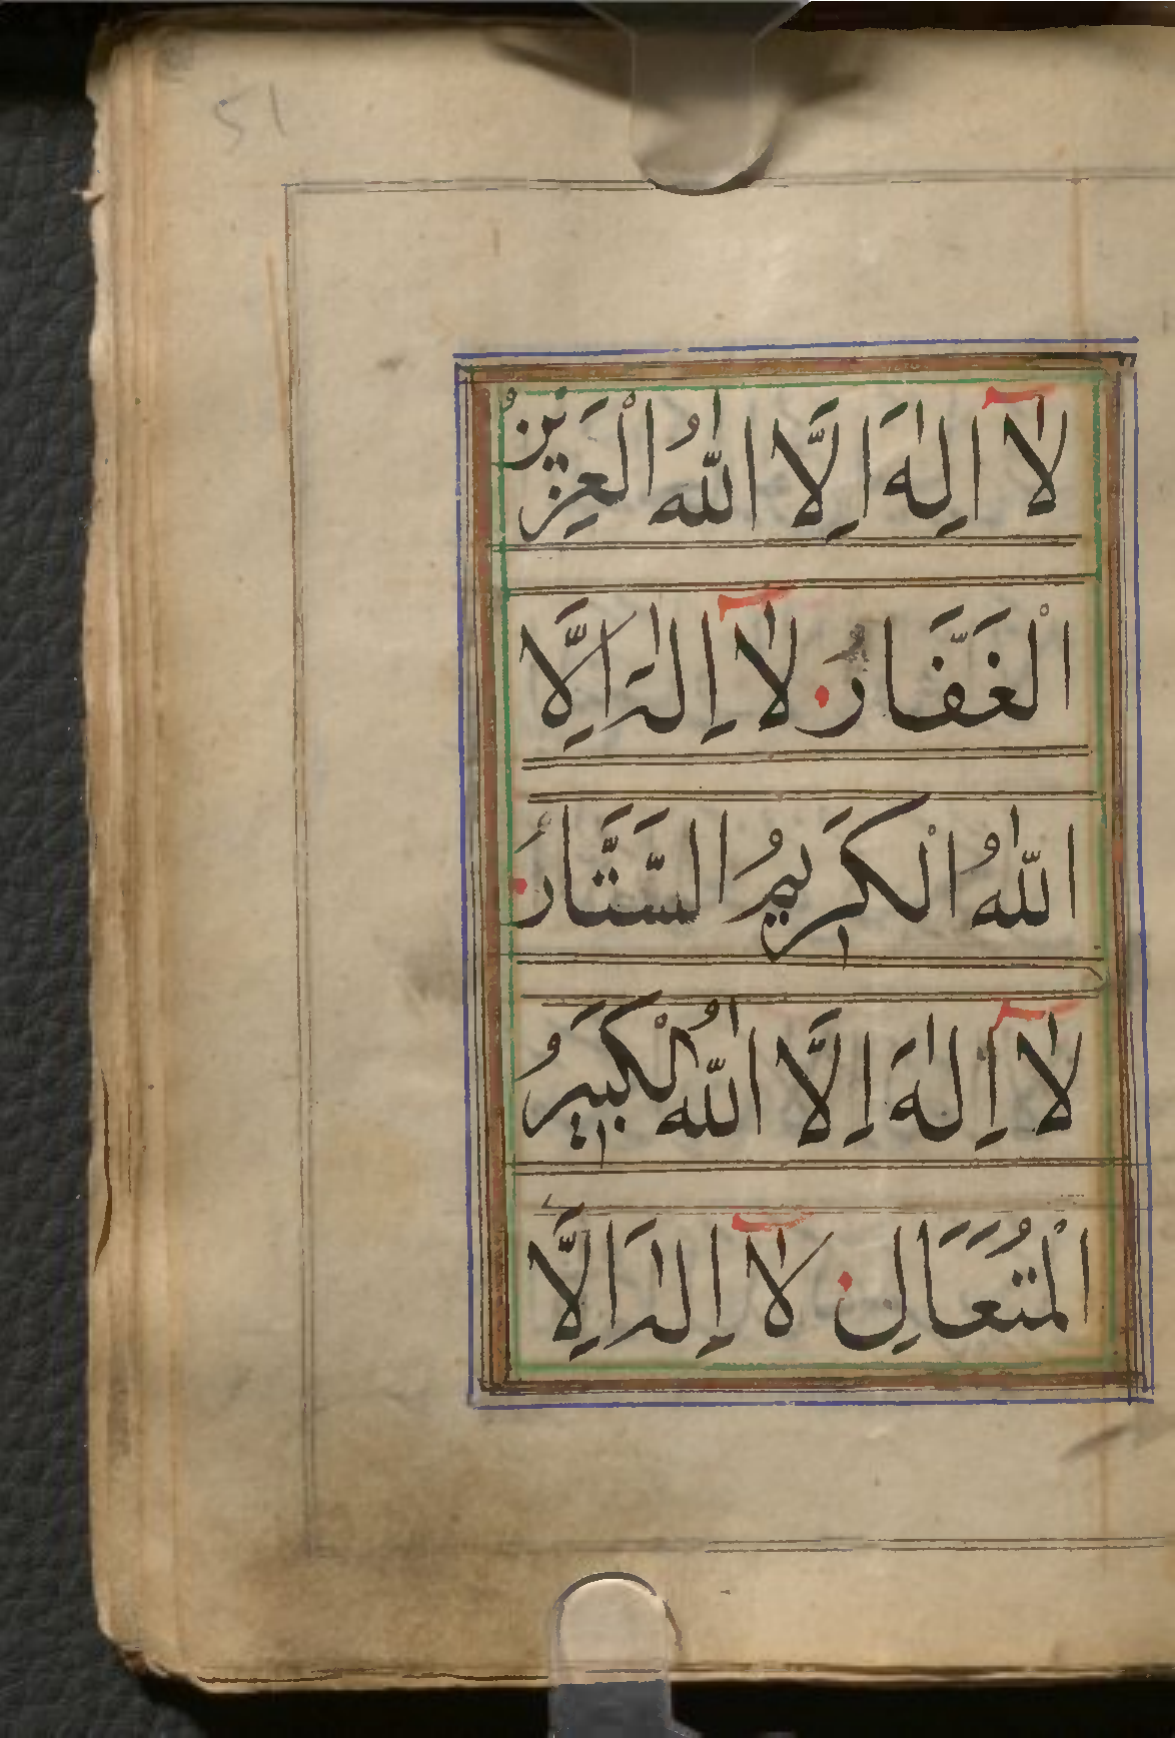 51
لَآ اِلٰهَ اِلَّا اللّٰهُ الْعَزِيزُ
الْغَفَّارُ لَآ اِلٰهَ اِلَّا
اللّٰهُ الْكَرِيمُ السَّتَّارُ
لَآ اِلٰهَ اِلَّا اللّٰهُ الْكَبِيرُ
الْمُتَعَالِ لَآ اِلٰهَ اِلَّا